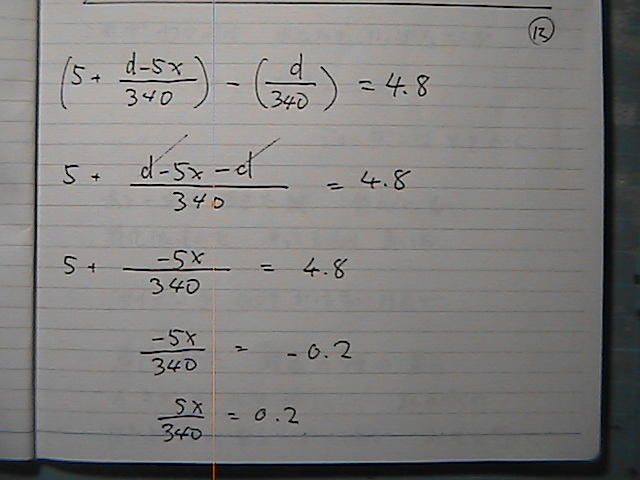 13
(5 + (d-5x)/340) - (d/340) = 4.8
5 + (d-5x-d)/340 = 4.8
5 + -5x/340 = 4.8
-5x/340 = -0.2
5x/340 = 0.2